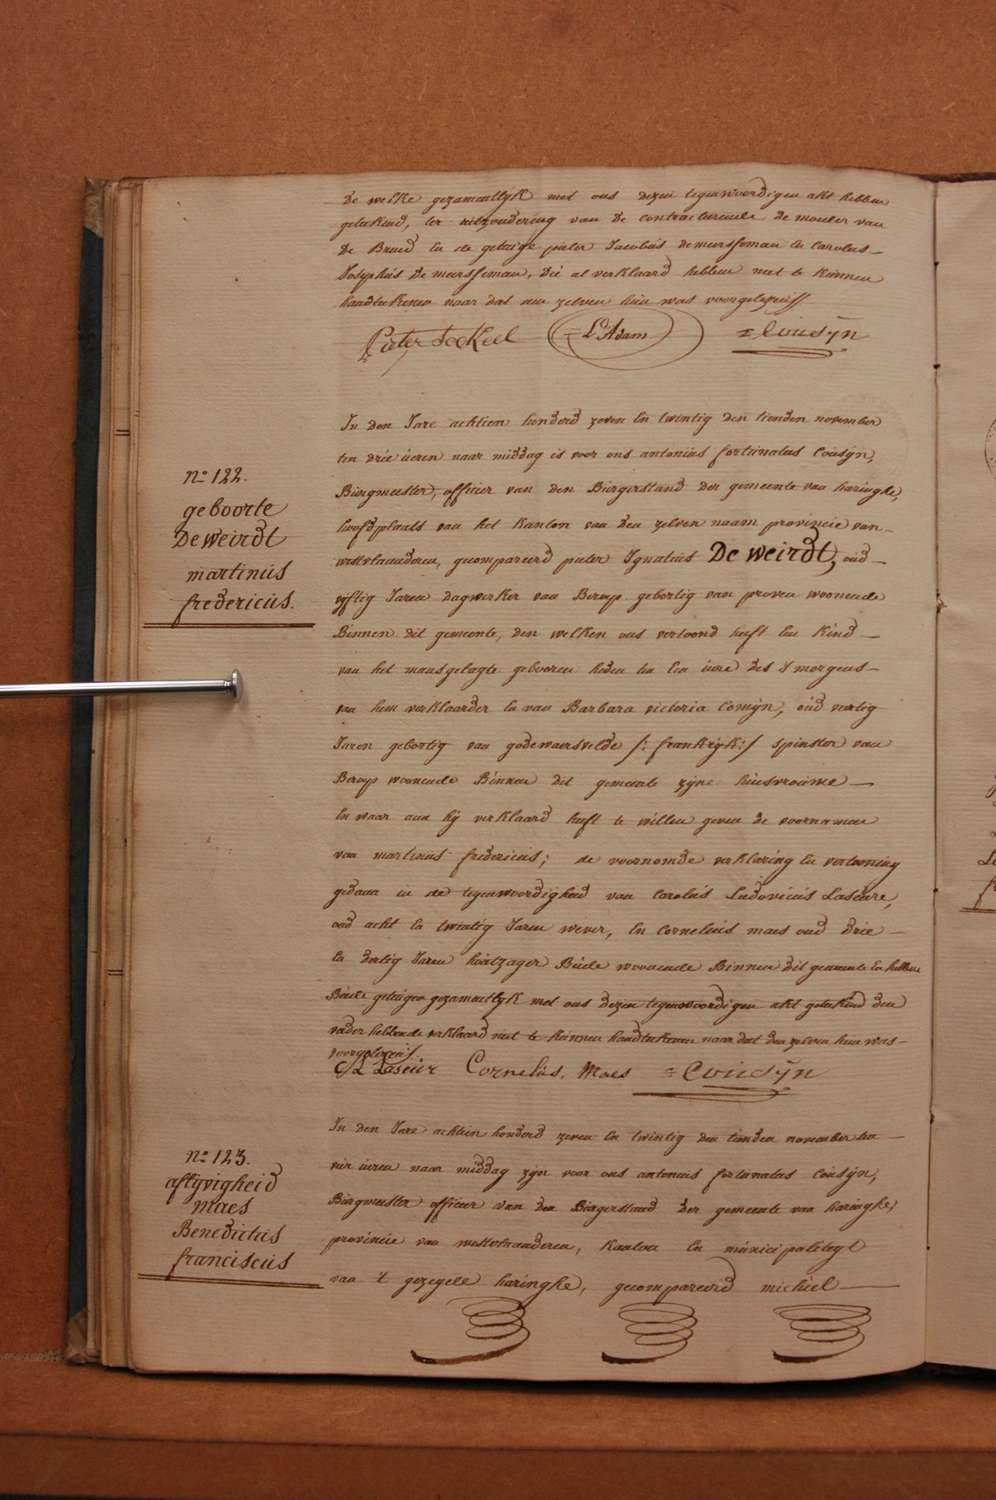 de welke gezamentlyk met ons dezen tegenwoordigen akt hebben
geteekend, ter uitzondering van de contracterende de moeder van
de Bruid en de getuige pieter Jacobus demeersseman en Carolus
Josephus de meersseman, die al verklaard hebben niet te konnen
handteekenen naar dat aen zelven hun was voorgelezen
Pieter L'Adam = Cousÿn
n:o 122.
geboorte
De Weirdt
martinus
fredericus.
In den Jare achtien honderd zeven en twintig den tienden november
ten drie ueren naar middag is voor ons antonius fortunatus Cousÿn,
Burgmeester, officier van den Burgerstand der gemeente van haringhe,
hoofdplaats van het kanton van den zelven naam provincie van
westvlaanderen, gecompareerd pieter Ignatius De Weirdt, oud
vyftig Jaren dagwerker van Beroep gebortig van proven woonende
Binnen dit gemeente, den welken ons vertoond heeft een kind
van het mansgeslagte gebooren heden ten een uure des s'morgens
van hem verklaarder en van Barbara victoria Comÿn, oud veertig
Jaren gebortig van godewaersvelde /: frankrÿk :/ spinster van
Beroep woonende Binnen dit gemeente zÿne huisvrouwe
en waar aen hÿ verklaard heeft te willen geven de voornamen
van martinus fredericus; de voornomde verklaring en vertooning
gedaan in de tegenwoordigheid van Carolus Ludovicus Laseure,
oud acht en twintig Jaren wever, en Cornelius maes oud drie
en dertig Jaren houtzager Beide woonende Binnen dit gemeente en hebben
Beide getuigen gezamentlyk met ons dezen tegenwoordigen akt geteekend den
vader hebbende verklaard niet te konnen handteekenen naar dat den zelven hem was
voorgelezen
Cornelius. Maes = Cousÿn
n:o 123.
aflyvigheid
maes
Benedictus
franciscus
In den Jare achtien honderd zeven en twintig den tienden november ten
vier uren naar middag zyn voor ons antonius fortunatus Cousÿn,
Burgmeester officier van den Burgerstand der gemeente van haringhe
provincie van westvlaanderen, kanton en municipaliteyt
van 't gezegde haringhe, gecompareerd michiel